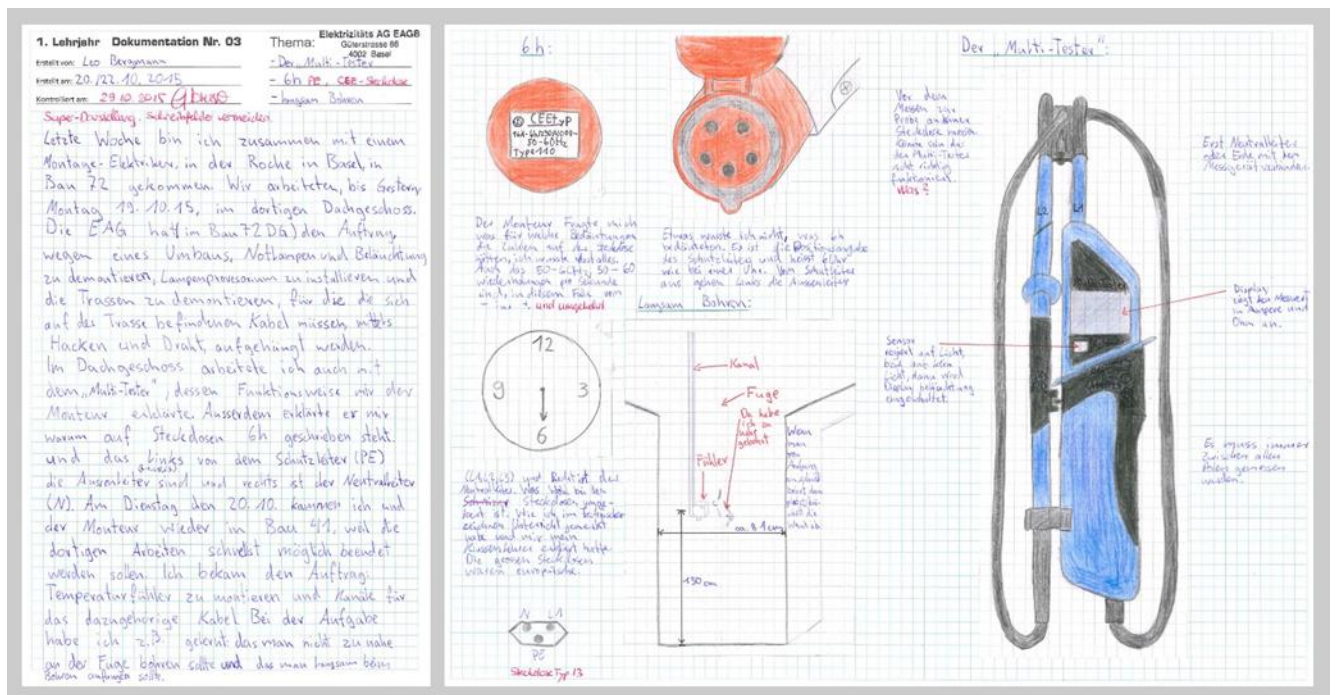 1. Lehrjahr Dokumentation Nr. 03
Erstellt von: Leo Bergmann
Erstellt am: 20./22.10.2015
Kontrolliert am: 29.10.2015
Elektrizitäts AG EAGB
Güterstrasse 86
4002 Basel
Thema:
- Der "Multi-Tester
- 6h PE, CEE-Steckdose
- langsam Bohren
Super-Darstellung. Schreibfehler vermeiden.
Letzte Woche bin ich zusammen mit einem
Montage-Elektriker, in der Roche in Basel, in
Bau 72 gekommen. Wir arbeiteten, bis Gestern
Montag 19.10.15, im dortigen Dachgeschoss.
Die EAG hat (im Bau 72 DG) den Auftrag
wegen eines Umbaus, Notlampen und Beläuchtung
zu demontieren, Lampenprovisorium zu installieren und
die Trassen zu demontieren, für die die sich
auf des Trasse befindenen Kabel müssen mittels
Hacken und Draht, aufgehängt werden.
Im Dachgeschoss arbeitete ich auch mit
dem "Multi-Tester", dessen Funktionsweise mir der
Monteur erklärte. Ausserdem erklärte er mir
warum auf Steckdosen 6h geschrieben steht.
und das Links von dem Schutzleiter (PE)
die Aussenleiter sind und rechts ist der Neutralleiter
(N). Am Dienstag den 20.10. kammen ich und
der Monteur wieder in Bau 41, weil die
dortigen Arbeiten schnelst möglich beendet
werden sollen. Ich bekam den Auftrag:
Temperaturfühler zu montieren und Kanäle für
das dazugehörige Kabel. Bei der Aufgabe
habe ich z.B. gelernt: das man nicht zu nahe
an der Fuge bohren sollte und das man langsam beim
Bohren anfangen sollte.
6h:
CEEtyp
50-60Hz
Type 110
Der Monteur Fragte mich
was für welche Bedäutungen
die Zahlen auf der Steckdose
hätten, ich wusste nicht alles.
Auch das 50-60Hz, 50-60
wiederholungen pro Sekunde
sind, in diesem Fall von
und umgekehrt
Etwas wusste ich nicht, was 6h
bedäuteten. Es ist die Positionsangabe
des Schutzleiters und heisst 6 Uhr
wie bei einer Uhr. Vom Schutzleiter
aus gehen Links die Aussenleiter
12
9
3
6
(L1, L2, L3) und Rechts ist der
Neutralleiter. Was
Steckdosen
ist. Wie ich im
zeichnen Unterricht gemerkt
habe und mir mein
Klassenlehrer erklärt hatte.
Die grossen Steckdosen
waren europäische.
N L1
PE
Steckdose Typ 13
Langsam Bohren:
Kanal
Fuge
Da habe
ich zu
nahe
gebohrt
Fühler
Wenn
man
von
Anfang
an
ca. 81cm
150cm
Der "Multi-Tester":
Vor dem
Messen zur
Probe an einem
Steckdose messen.
Könnte sein das
der Multi-Tester
nicht richtig
funktioniert.
Was?
Erst Neutralleiter
oder Erde mit dem
Messgerät verbinden.
L2
L1
Display
zeigt den Messwert
in Ampere und
Ohm an.
Sensor
reagiert auf Licht,
Licht, dann wird
Displaybeläuchtung
eingeschaltet.
Es muss immer
zwischen allen
Polen gemessen
werden.